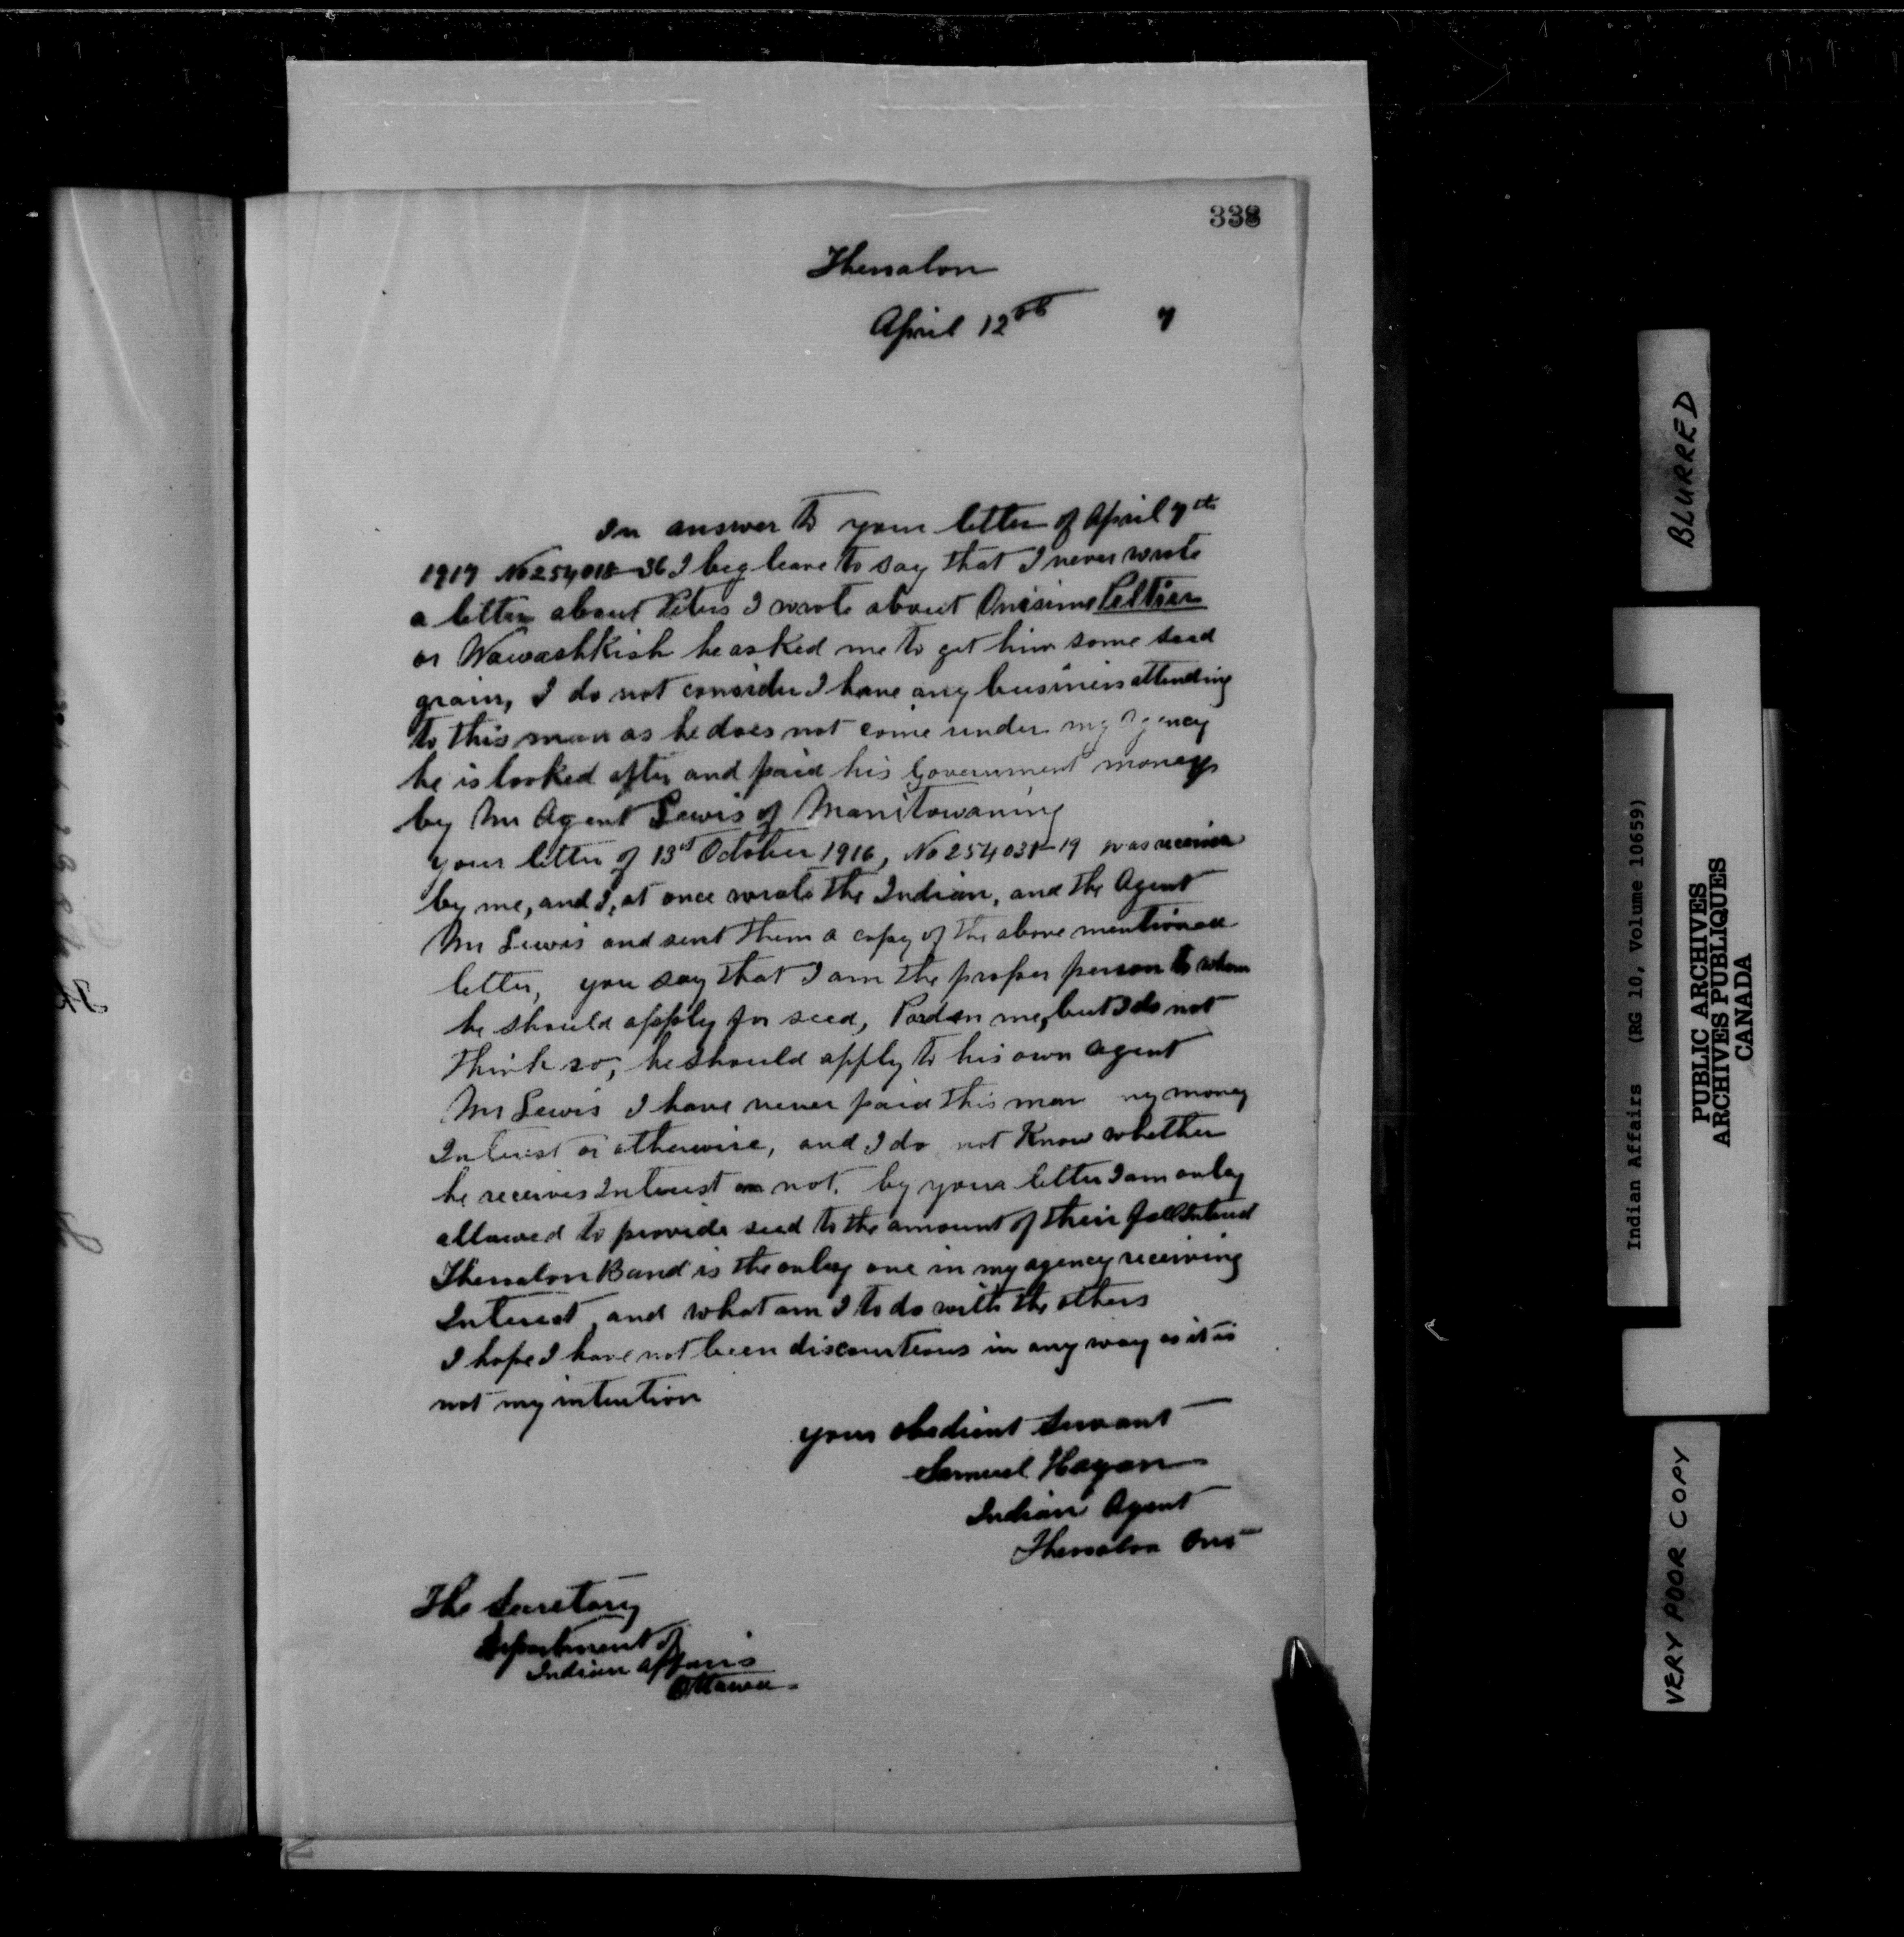 338
Thessalon
April 12th 7
In answer to your letter of April 7th
1917 No 254018-36 I beg leave to say that I never wrote
a letter about Peters I wrote about Onisime Peltier
or Wawashkish he asked me to get him some seed
grain, I do not consider I have any business attending
to this man as he does not come under my agency
he is looked after and paid his Government money
by Mr Agent Lewis of Manitowaning
your letter of 13th October 1916, No 254031-19 was received
by me, and I, at once wrote the Indian, and the Agent
Mr Lewis and sent them a copy of the above mentioned
letter, you say that I am the proper person to whom
he should apply for seed, Pardon me, but I do not
think so, he should apply to his own agent
Mr Lewis I have never paid this man ny money
Interest or otherwise, and I do not Know whether
he receives Interest or not. by your letter I am only
allowed to provide seed to the amount of their fall Interest
Thessalon Band is the only one in my agency receiving
Interest, and what am I to do with the others
I hope I have not been discourteous in any way as it is
not my intention
your obedient servant
Samuel Hagan
Indian Agent
Thessalon Ont
The Secretary
Department of
Indian Affairs
Ottawa
BLURRED
Indian Affairs (RG 10, Volume 10659)
PUBLIC ARCHIVES
ARCHIVES PUBLIQUES
CANADA
VERY POOR COPY